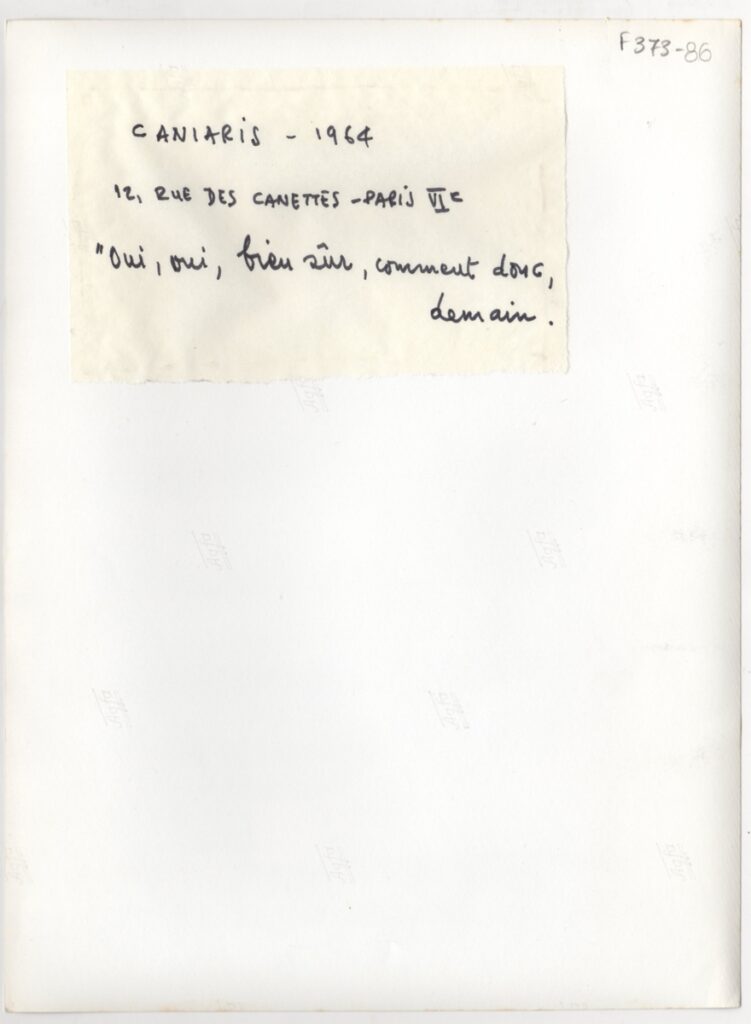 F373-86
CANIARIS - 1964
12, RUE DES CANETTES - PARIS VIe
"Oui, oui, bien sûr, comment donc,
demain.